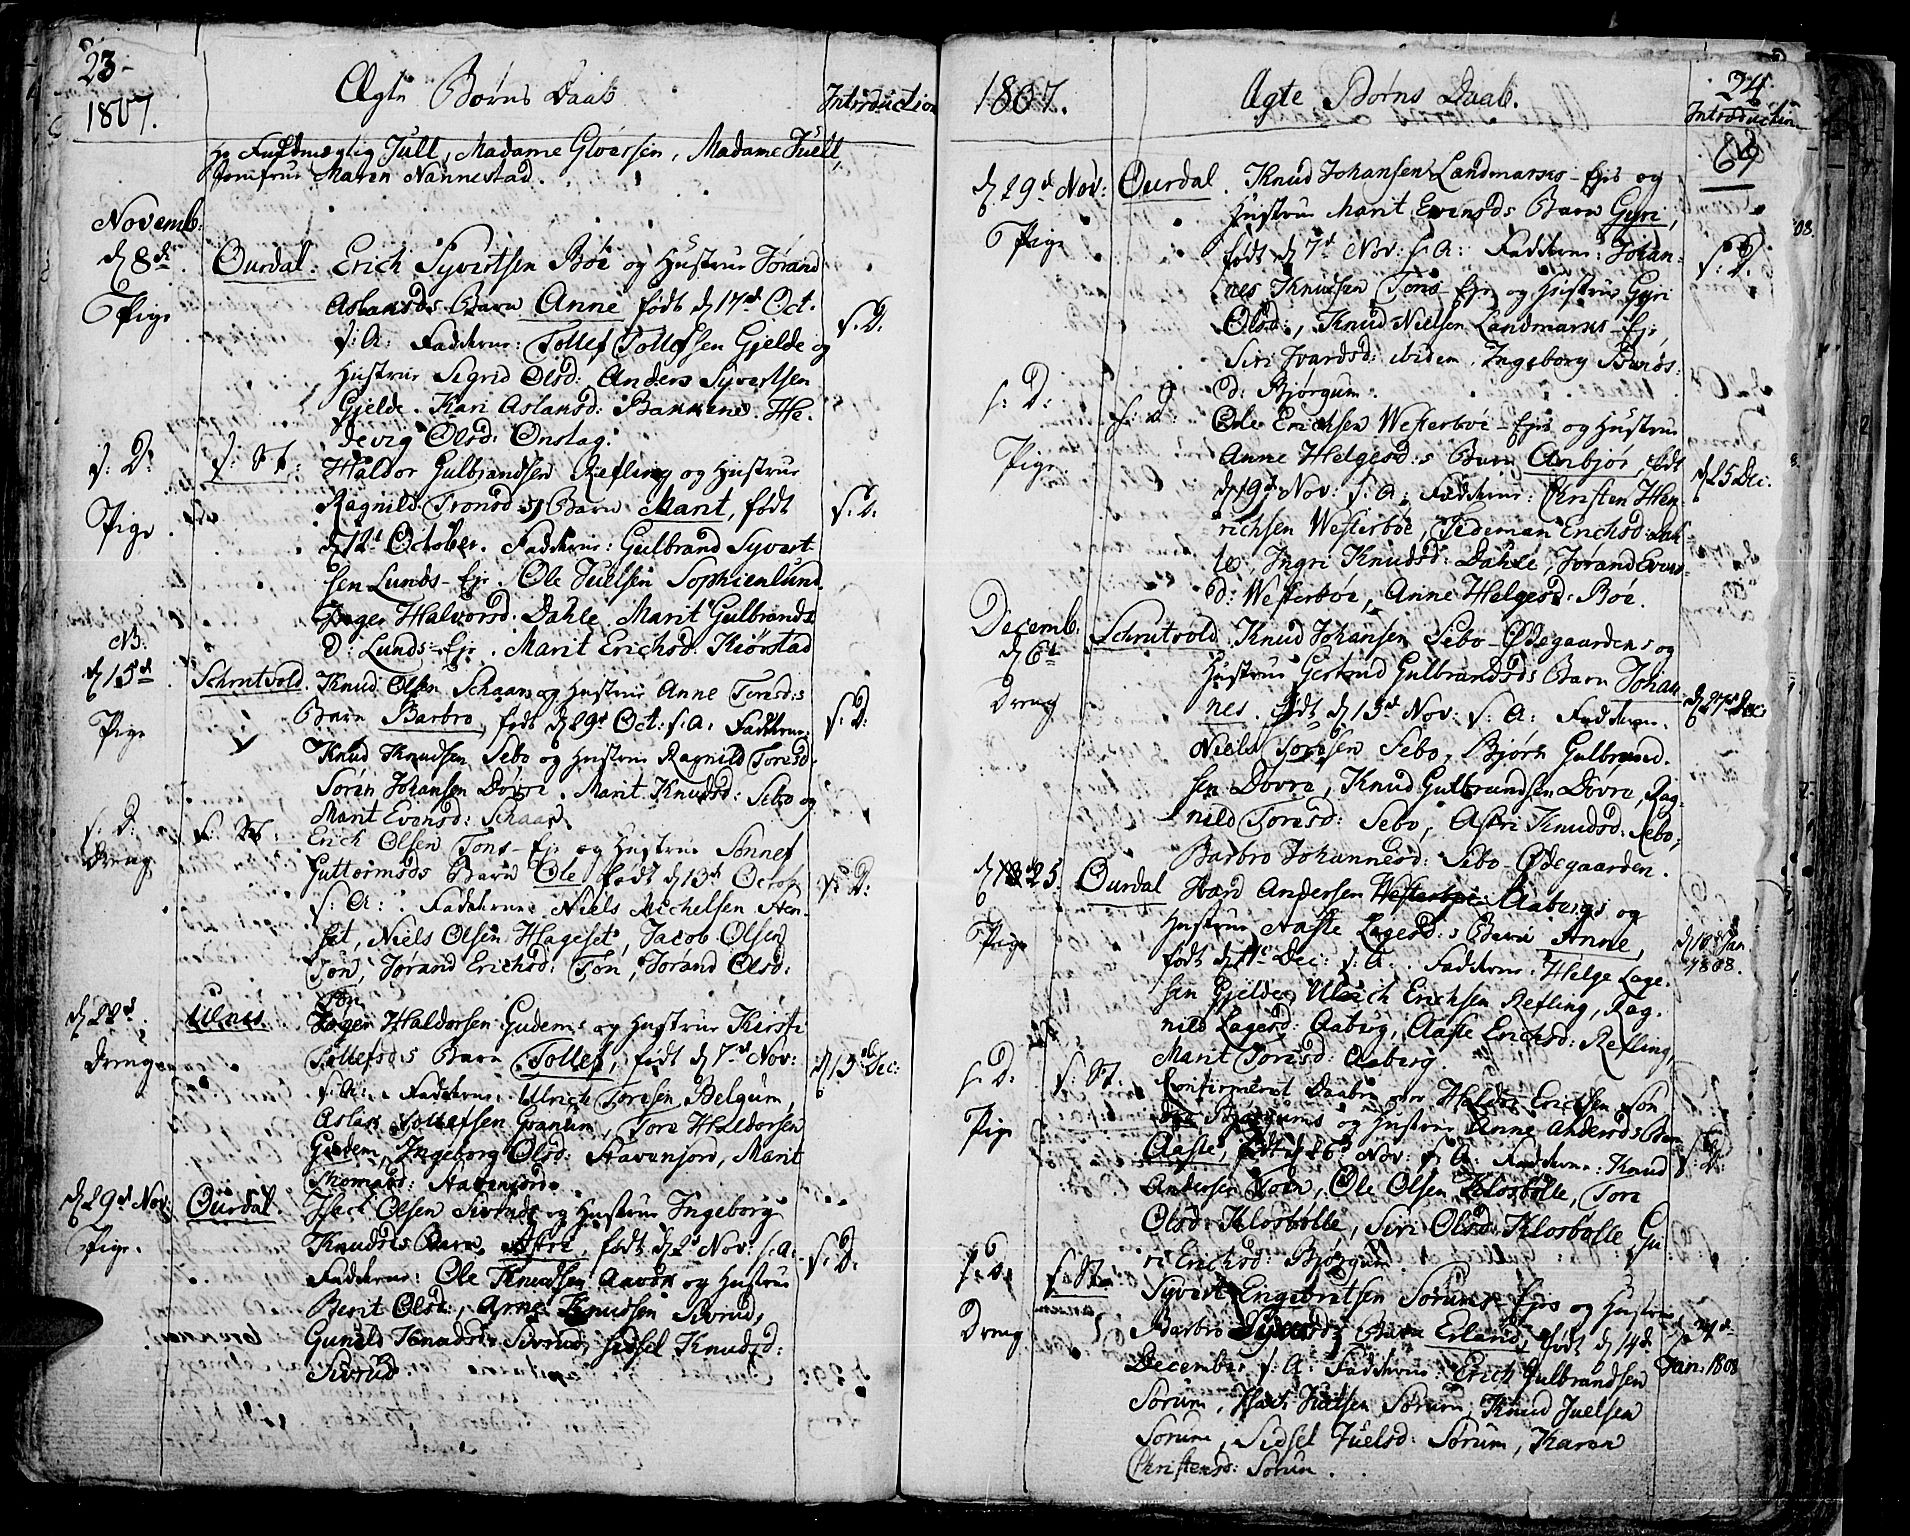 23
1807.
Ægte Børns Daab
Introduction
Hr Fuldmægtig Jull, Madame Gloersen, Madame Juell,
Jomfrue Maren Nannestad.
Novemb:
d 8de
Pige
Ourdal. Erich Syvertsen Bøe og Hustrue Jørand
Aslansds Barn Anne født d 17d Oct.
s: A: Fadderne: Tollef Tollefsen Gjelde og
s: D:
Hustrue Sigrid Olsd: Anders Syvertsen
Gjelde. Kari Aslansd: Bakkene. He-
devig Olsd: Onstag.
s: D:
Pige
s: St: Haldor Gulbrandsen Refling og Hustrue
Ragnild Tronsds Barn Marit, født
s: D:
d 12d October. Fadderne: Gulbrand Syvert-
sen Lunds-Eje. Ole Juelsen Sophienlund
Inger Halvorsd: Dahle. Marit Gulbrands
D: Lunds-Eje. Marit Erichsd: Kiørstad
NB.
d 15d
Pige
Schrutvold. Knud Olsen Schaars og Hustrue Anne Toresd:s
Barn Barbro, født d 29d Oct: s: A: Fadderne:
s: D:
Knud Knudsen Sebo og Hustrue Ragnild Toresd:
Søren Johansen Dovre. Marit Knudsd: Sebo og
Marit Evensd: Schaar.
s: D:
Dreng
s: St: Erich Olsen Tons-Eje og Hustrue Sønnef
Guttormsds Barn Ole født d 13d Octob
s: D:
s: A: Fadderne Niels Michelsen Sten-
set, Niels Olsen Hageset, Jacob Olsen
Ton, Jørand Erichsd: Ton, Jørand Olsd:
Ton.
d 22d
Dreng
Ulnes. Inger Haldorsen Gudems og Hustrue Kirsti
Tollefsds Barn Tollef, født d 7d Nov:
d 13d Dec:
s: A: Fadderne: Ulrich Toresen Belgum,
Aslak Tollefsen Granum, Tore Haldorsen
Gudem, Ingeborg Olsd: Stavenjord, Marit
Thomasd: Stavenjord.
d 29d Nov:
Pige.
Ourdal. Isach Olsen Sivruds og Hustrue Ingeborg
Knudsds Barn Astri, født d 2d Nov: s: A:
s: D:
Fadderne: Ole Knudsen Aavdn og Hustrue
Berit Olsd:, Arne Knudsen Sivrud,
Gunild Knudsd: Sivrud, Sidsel Knudsd:
Sivrud.
1807.
Ægte Børns Daab.
24.
Introduction
69
d 29d Nov:
Pige
Ourdal. Knud Johansen Landmarks-Ejes og
Hustrue Marit Evensds Barn Gyri,
født d 7d Nov: s: A: Fadderne: Johan-
s: D:
nes Knudsen Tons-Eje og Hustrue Gyri
Olsd:, Knud Nielsen Landmarks-Eje
Siri Ivarsd: ibidem. Ingeborg Bends:
D: Bjørgum.
s: D:
Pige
s: D: Ole Erichsen Westerbøe-Ejes og Hustrue
Anne Helgesd:s Barn Anbjør, født
d 25 Dec.
d 19d Nov: s: A: Fadderne: Christen Hen-
richsen Westerbøe, Tideman Erichsd: Dah-
le, Ingri Knudsd: Dahle, Jørand Evens-
D: Westerbøe, Anne Helgesd: Bøe.
Decemb:
d 6d
Dreng
Schrutvold. Knud Johansen Sebo-Ødegaardens og
Hustrue Gertrud Gulbrandsds Barn Johan-
nes. født d 13d Nov: s: A: Fadderne.
d 27d Dec:
Niels Toresen Sebo, Bjørn Gulbrand-
sen Dovre, Knud Gulbrandsen Dovre, Rag-
nild Toresd: Sebo, Astri Knudsd: Sebo,
Barbro Johannesd: Sebo-Ødegaarden.
d 25.
Pige
Ourdal Ivard Andersen Aabergs og
Hustrue Aaste Lagesd:s Barn Anne,
født d 11d Dec: s: A: Fadderne: Helge Lage-
d 10d Jan
1808.
sen Gjelde, Ulrich Erichsen Refling, Rag-
nild Lagesd: Aaberg, Aaste Erichsd: Refling,
Marit Toresd: Aaberg.
s: D:
Pige
s: St. Confirmeret Daaben over Haldor Erichsen Søn-
dre Bjørgums og Hustrue Anne Andersds Barn
Aaste, født d 26d Nov: s: A: Fadderne: Knud
s: D:
Andersen Foen, Ole Olsen Klosbølle, Tore
Olsd: Klosbølle, Siri Olsd: Klosbølle, Gu-
ri Erichsd: Bjørgum.
s: D:
Dreng
s: St. Syvert Engebretsen Sorums-Ejes og Hustrue
Barbro Barn Erland, født d 14d
d 24d
Jan: 1808
December s: A: Fadderne: Erich Gulbrandsen
Sorum, Isach Juelsen Sorum, Knud Juelsen
Sorum, Sidsel Juelsd: Sorum, Karen
Christensd: Sorum.